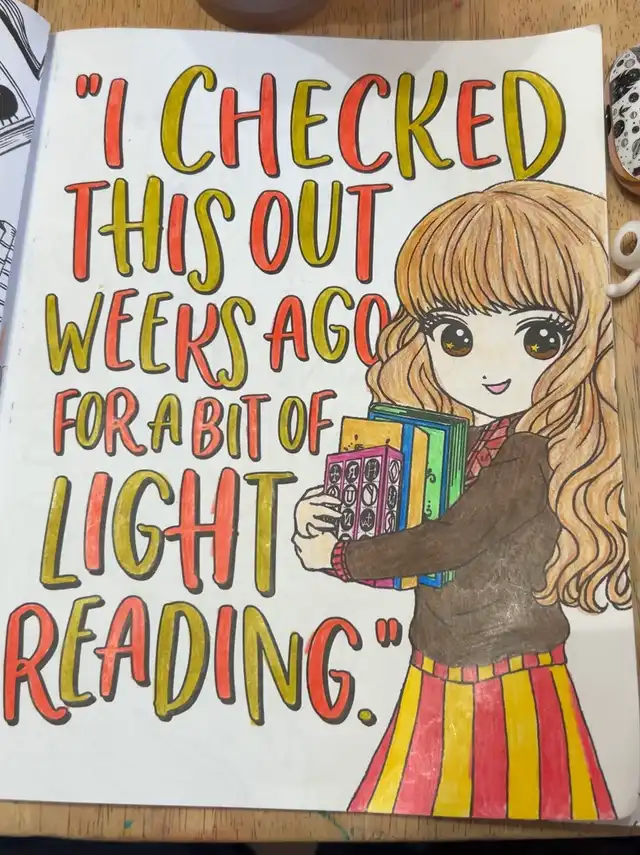 "I CHECKED
THIS OUT
WEEKS AGO
FOR A BIT OF
LIGHT
READING."